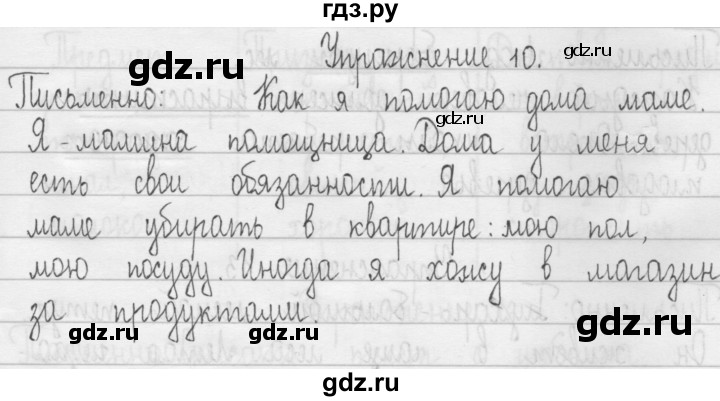 гдз.ру
Упражнение 10.
gdz.ru
gdz.ru
Письменно: Как я помогаю дома маме.
gdz.ru
gdz.ru
Я - мамина помощница. Дома у меня
есть свои обязанности. Я помогаю
gdz.ru
маме убирать в квартире: мою пол,
gdz.ru
мою посуду. Иногда я хожу в магазин
за продуктами.
gdz.ru
gdz.ru
gdz.ru
gdz.ru